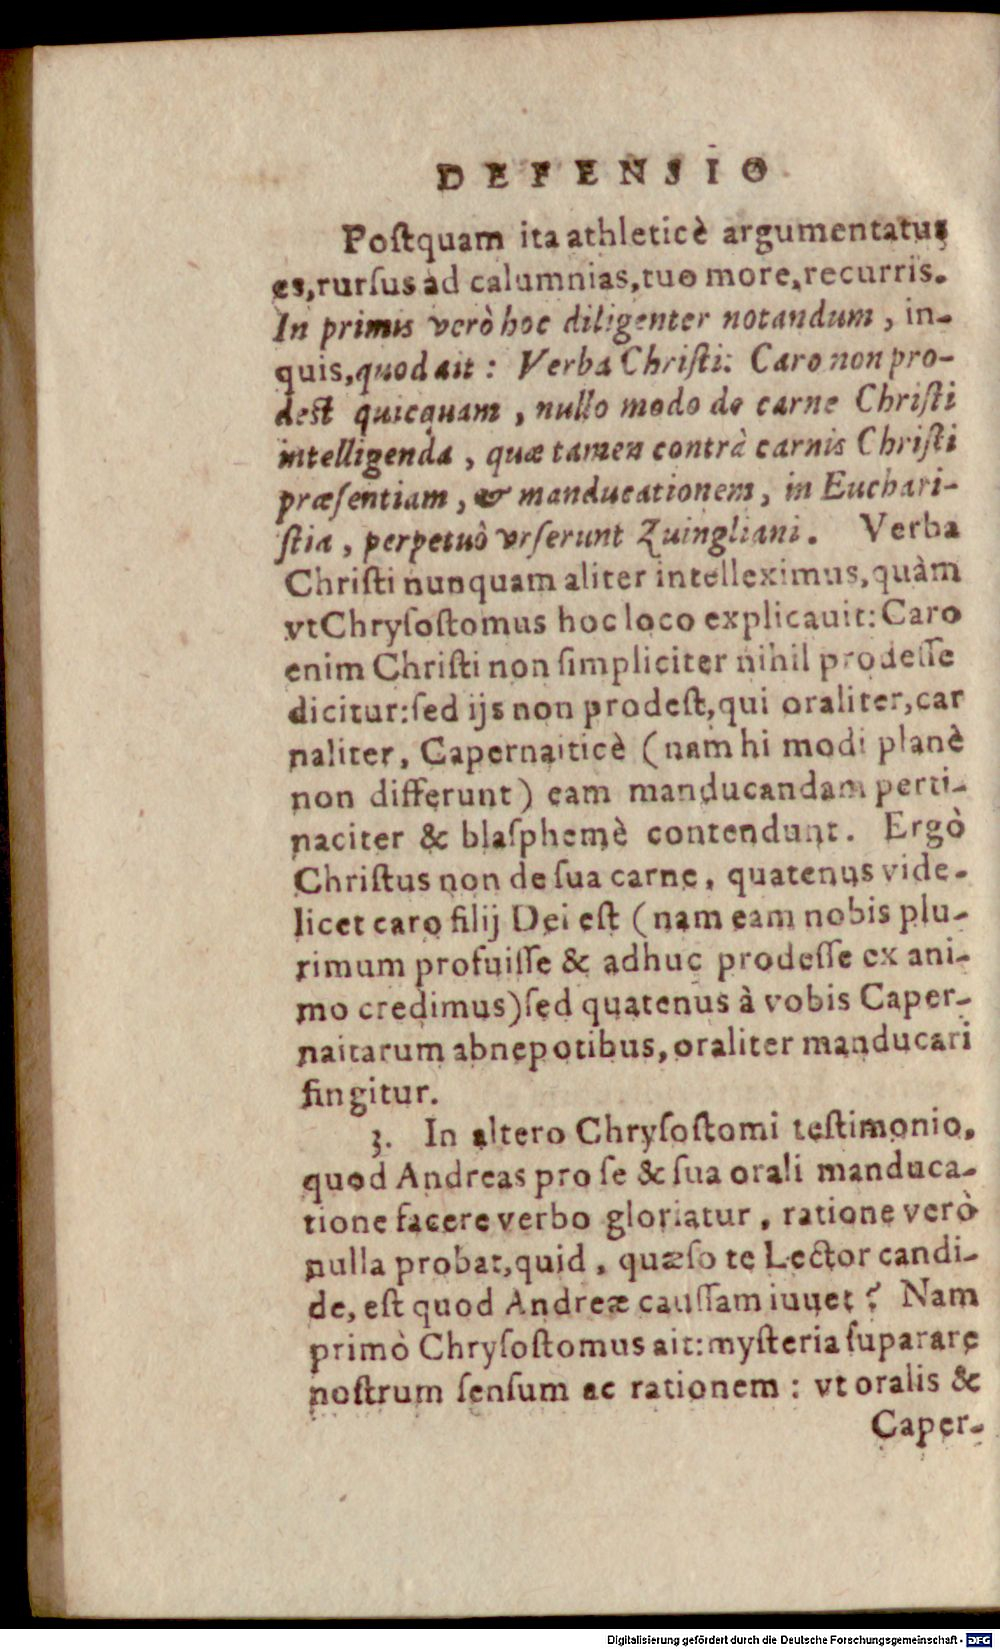 DEFENSIO
Poſtquam ita athleticè argumentatus
es, rurſus ad calumnias, tuo more, recurris.
In primis verò hoc diligenter notandum, in-
quis, quod ait: Verba Chriſti: Caro non pro-
dest quicquam, nullo modo de carne Chriſti
intelligenda, quæ tamen contrà carnis Chriſti
præſentiam, & manducationem, in Euchari-
ſtia, perpetuò vrſerunt Zuingliani. Verba
Chriſti nunquam aliter intelleximus, quàm
vt Chryſoſtomus hoc loco explicauit: Caro
enim Chriſti non ſimpliciter nihil prodeſſe
dicitur: ſed ijs non prodeſt, qui oraliter, car
naliter, Capernaiticè (nam hi modi planè
non differunt) eam manducandam perti-
naciter & blaſphemè contendunt. Ergò
Chriſtus non de ſua carne, quatenus vide-
licet caro filij Dei eſt (nam eam nobis plu-
rimum profuiſſe & adhuc prodeſſe ex ani-
mo credimus) ſed quatenus à vobis Caper-
naitarum abnepotibus, oraliter manducari
fingitur.
3. In altero Chryſoſtomi teſtimonio,
quod Andreas pro ſe & ſua orali manduca-
tione facere verbo gloriatur, ratione verò
nulla probat, quid, quæſo te Lector candi-
de, eſt quod Andreæ cauſſam iuuet? Nam
primò Chryſoſtomus ait: myſteria ſuparare
noſtrum ſenſum ac rationem: vt oralis &
Caper-
Digitalisierung gefördert durch die Deutsche Forschungsgemeinschaft - DFG